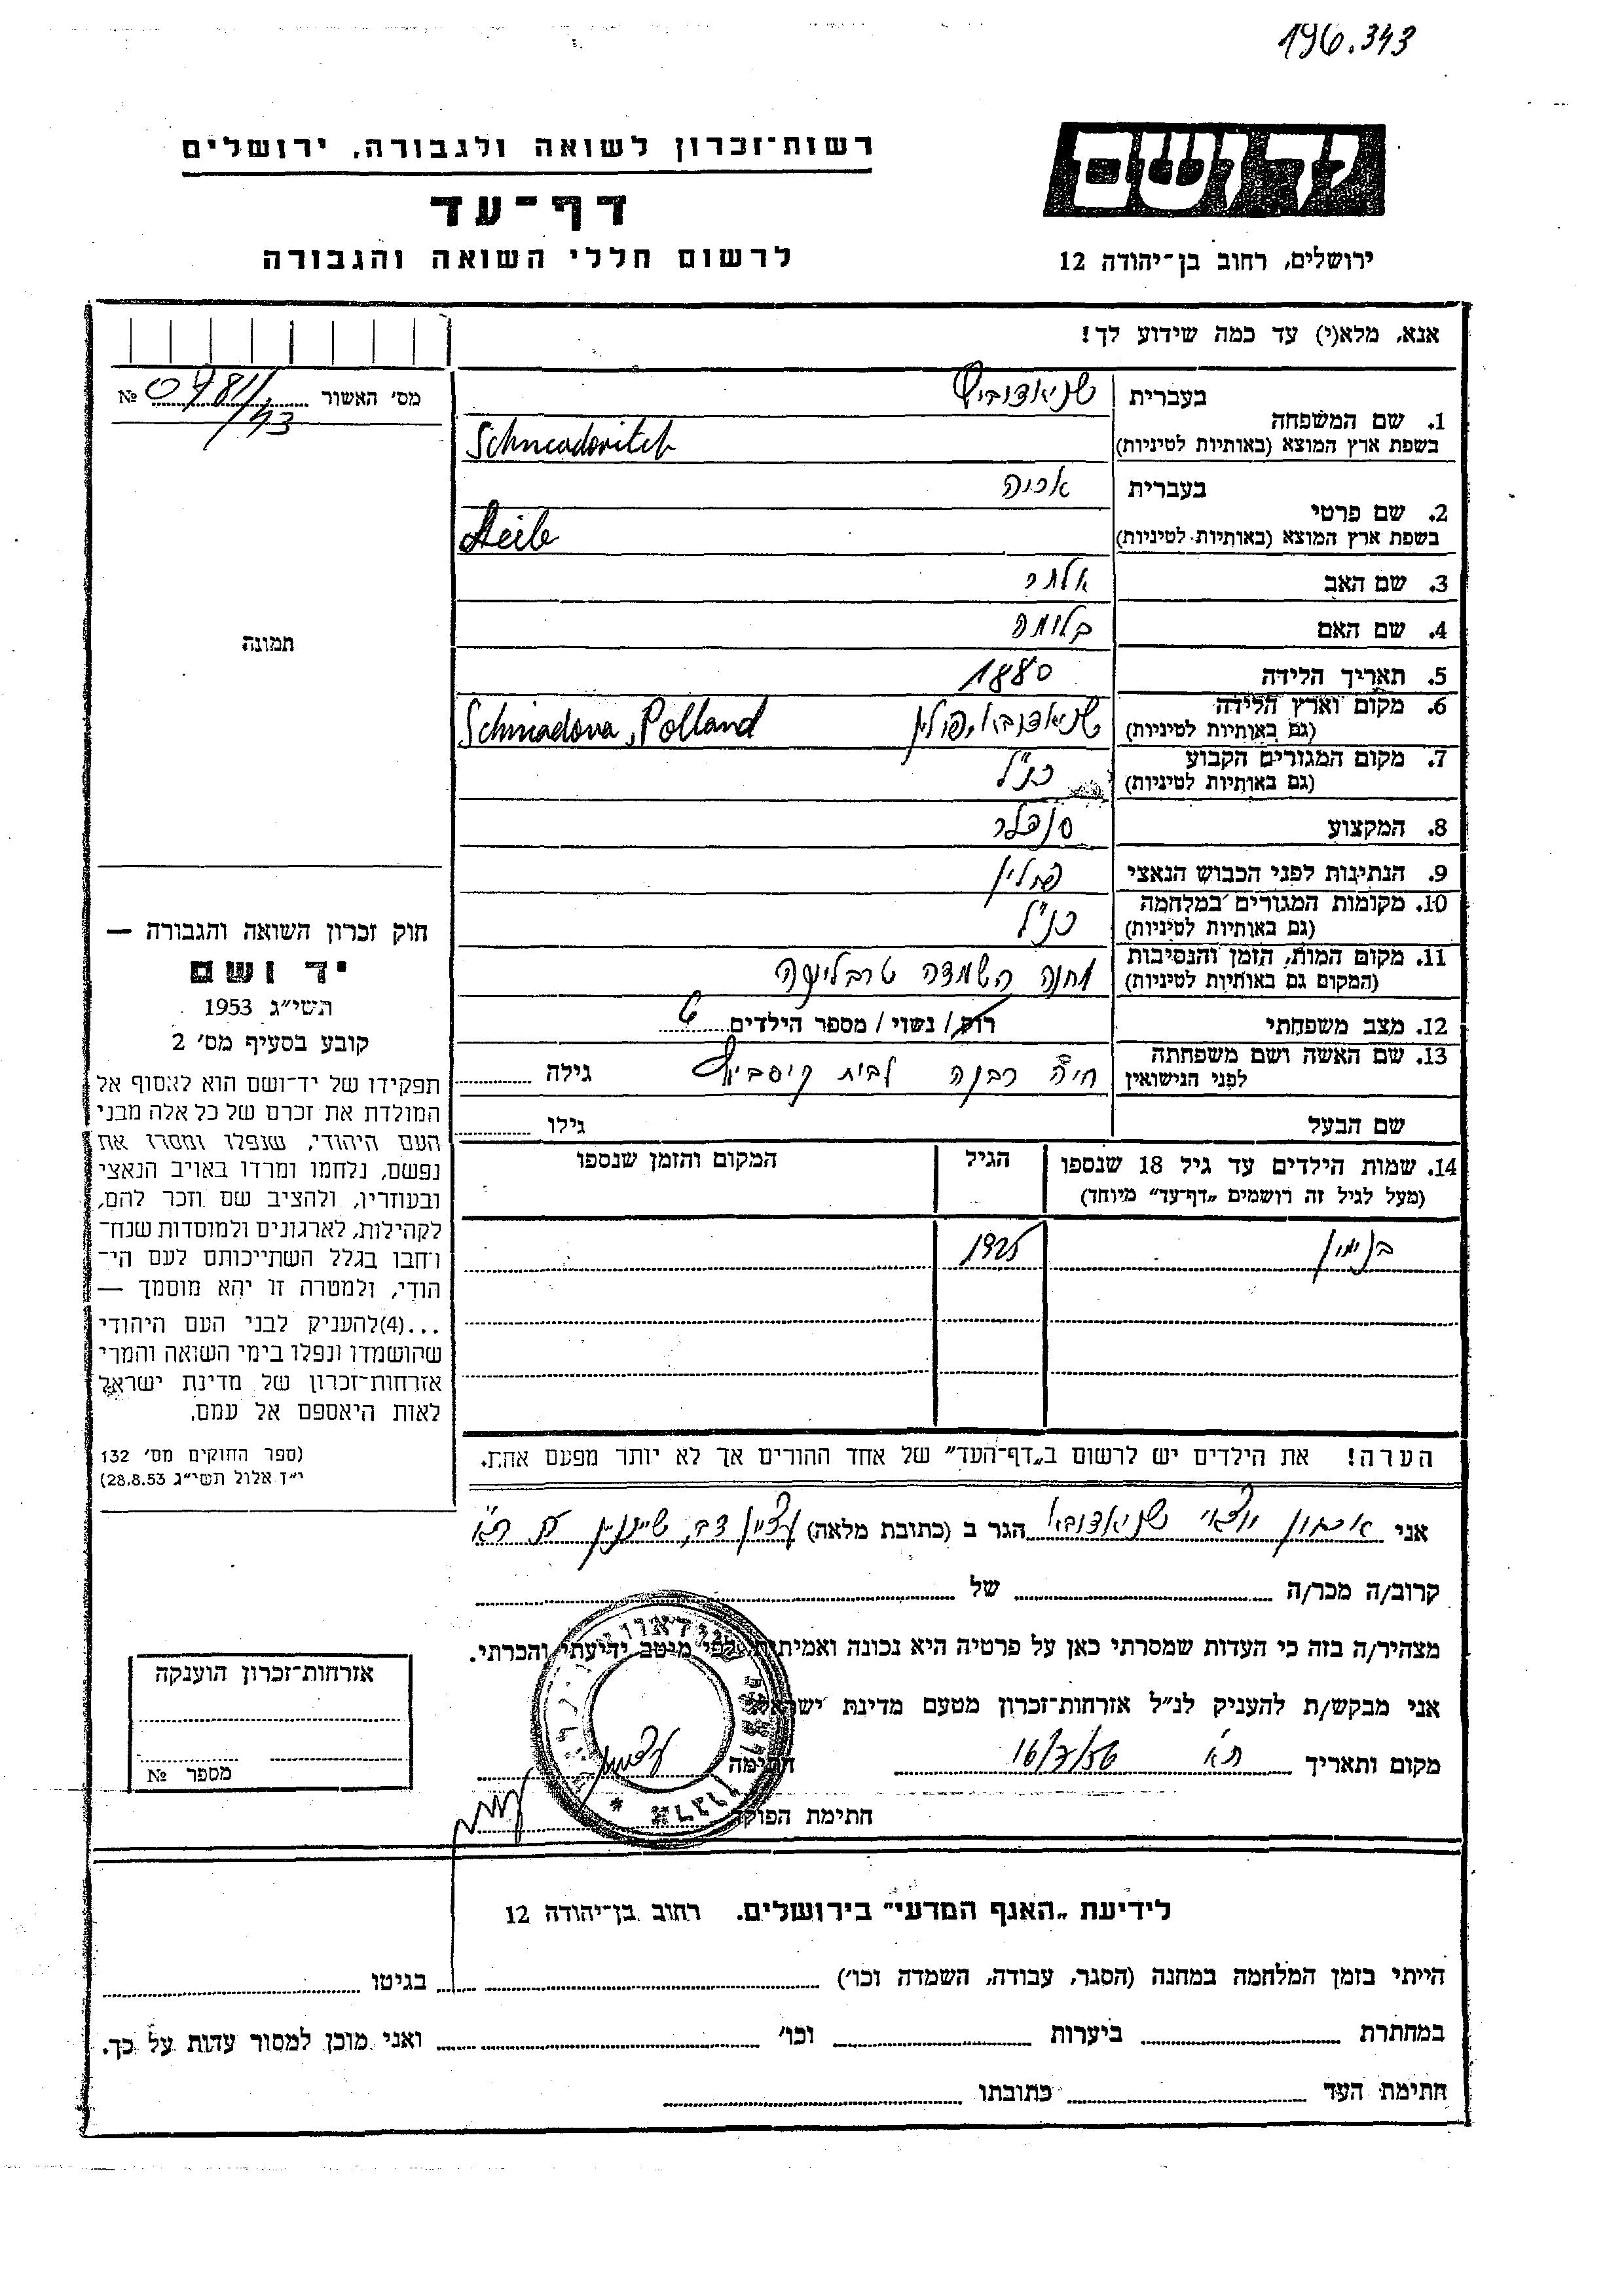 196.343
רשות־זכרון לשואה ולגבורה, ירושלים
דף־עד
לרשום חללי השואה והגבורה
יד ושם
ירושלים, רחוב בן־יהודה 12
אנא, מלא(י) עד כמה שידוע לך!
מס׳ האשור № 0781/43
בעברית שניאדוביץ
1. שם המשפחה
בשפת ארץ המוצא (באותיות לטיניות) Schneadovitch
בעברית
2. שם פרטי
בשפת ארץ המוצא (באותיות לטיניות)
3. שם האב אלתר
4. שם האם בלומה
5. תאריך הלידה 1880
6. מקום וארץ הלידה שניאדובא, פולין Schniadova, Polland
(גם באותיות לטיניות)
7. מקום המגורים הקבוע כנ״ל
(גם באותיות לטיניות)
8. המקצוע סנדלר
9. הנתינות לפני הכבוש הנאצי פולין
10. מקומות המגורים במלחמה כנ״ל
(גם באותיות לטיניות)
11. מקום המות, הזמן והנסיבות מחנה השמדה טרבלינקה
(המקום גם באותיות לטיניות)
12. מצב משפחתי רווק/ נשוי/ מספר הילדים 6
13. שם האשה ושם משפחתה חיה לבית גילה
לפני הנישואין
שם הבעל גילו
14. שמות הילדים עד גיל 18 שנספו הגיל המקום והזמן שנספו
(מעל לגיל זה רושמים „דף־עד״ מיוחד)
בנימין 1925
הערה! את הילדים יש לרשום ב„דף־העד״ של אחד ההורים אך לא יותר מפעם אחת.
תמונה
חוק זכרון השואה והגבורה —
יד ושם
תשי״ג 1953
קובע בסעיף מס׳ 2
תפקידו של יד־ושם הוא לאסוף אל
המולדת את זכרם של כל אלה מבני
העם היהודי, שנפלו ומסרו את
נפשם, נלחמו ומרדו באויב הנאצי
ובעוזריו, ולהציב שם וזכר להם,
לקהילות, לארגונים ולמוסדות שנח־
רבו בגלל השתייכותם לעם הי־
הודי, ולמטרה זו יהא מוסמך —
...(4)להעניק לבני העם היהודי
שהושמדו ונפלו בימי השואה והמרי
אזרחות־זכרון של מדינת ישראל
לאות היאספם אל עמם.
(ספר החוקים מס׳ 132
י״ד אלול תשי״ג 28.8.53)
אני ארגון יוצאי שניאדובא הגר ב (כתובת מלאה)
קרוב/ה מכר/ה של
מצהיר/ה בזה כי העדות שמסרתי כאן על פרטיה היא נכונה ואמיתית לפי מיטב ידיעתי והכרתי.
אני מבקש/ת להעניק לנ״ל אזרחות־זכרון מטעם מדינת ישראל
מקום ותאריך ת״א חתימה
חתימת הפוקד
אזרחות־זכרון הוענקה
מספר №
לידיעת „האגף המדעי״ בירושלים. רחוב בן־יהודה 12
הייתי בזמן המלחמה במחנה (הסגר, עבודה, השמדה וכו׳) בגיטו
במחתרת ביערות וכו׳ ואני מוכן למסור עדות על כך.
חתימת העד כתובתו